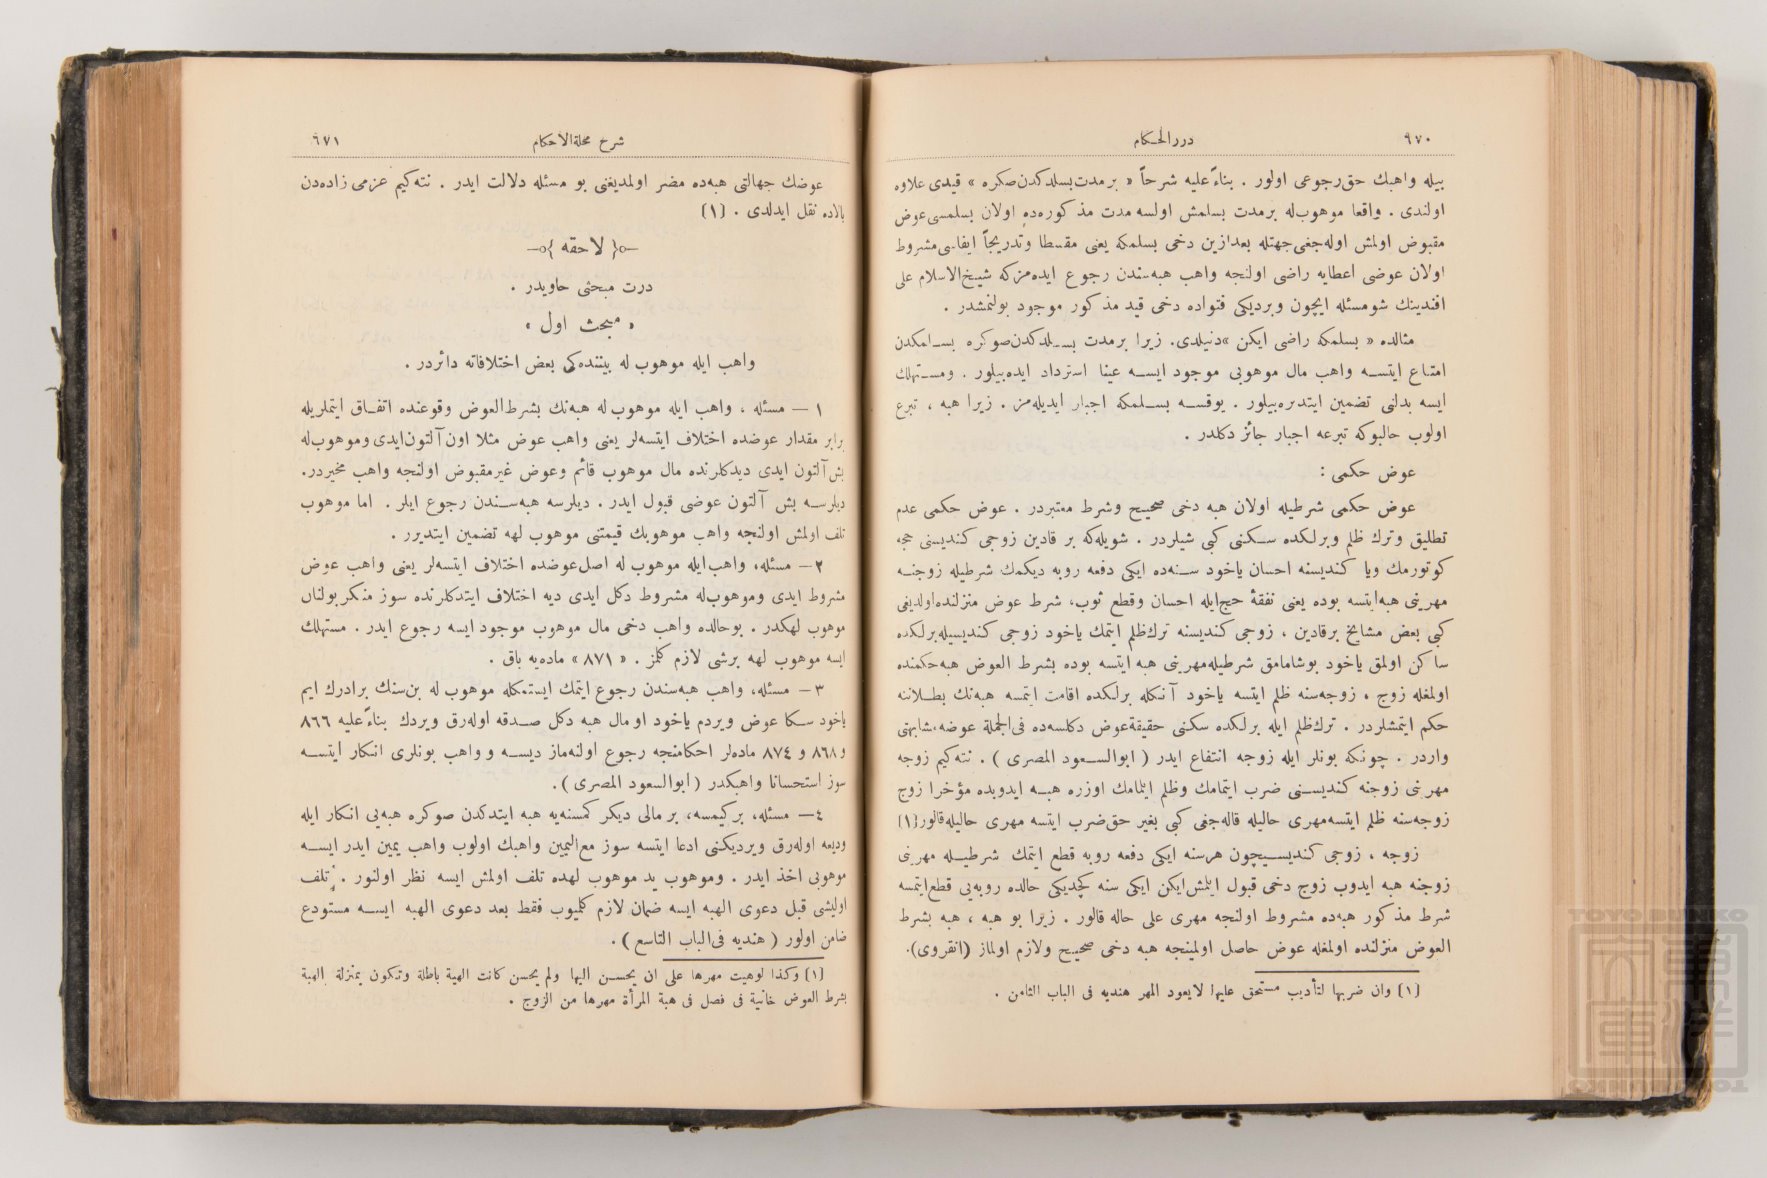 ٩٧٠
دررالحكام
بيله واهبك حق‌رجوعى اولور . بناءً عليه شرحاً « برمدت‌بسلدكدن‌صكره » قيدى علاوه
اولندى . واقعا موهوب‌له برمدت بسلمش اولسه مدت مذكوره‌ده اولان بسلمسى عوض
مقبوض اولمش اوله‌جغى‌جهتله بعدازين دخى بسلمكه يعنى مقسطا وتدريجاً ايفاسى‌مشروط
اولان عوضى اعطايه راضى اولنجه واهب هبه‌سندن رجوع ايده‌مزكه شيخ‌الاسلام على
افندينك شومسئله ايچون ويرديكى فتواده دخى قيد مذكور موجود بولنمشدر .
مثالده « بسلمكه راضى ايكن »دنيلدى. زيرا برمدت بسلدكدن‌صوكره بسلمكدن
امتناع ايتسه واهب مال موهوبى موجود ايسه عينا استرداد ايده‌بيلور . ومستهلك
ايسه بدلنى تضمين ايتديره‌بيلور . يوقسه بسلمكه اجبار ايديله‌مز . زيرا هبه ، تبرع
اولوب حالبوكه تبرعه اجبار جائز دكلدر .
عوض حكمى :
عوض حكمى شرطيله اولان هبه دخى صحيح وشرط معتبردر . عوض حكمى عدم
تطليق وترك ظلم وبرلكده سكنى كبى شيلردر . شويله‌كه بر قادين زوجى كنديسنى حجه
كوتورمك ويا كنديسنه احسان ياخود سنه‌ده ايكى دفعه روبه ديكمك شرطيله زوجنه
مهرينى هبه‌ايتسه بوده يعنى نفقهٔ حج‌ايله احسان وقطع ثوب، شرط عوض منزلنده‌اولديغى
كبى بعض مشايخ برقادين ، زوجى كنديسنه ترك‌ظلم ايتمك ياخود زوجى كنديسيله‌برلكده
ساكن اولمق ياخود بوشامامق شرطيله‌مهرينى هبه ايتسه بوده بشرط العوض هبه‌حكمنده
اولمغله زوج ، زوجه‌سنه ظلم ايتسه ياخود آنكله برلكده اقامت ايتمسه هبه‌نك بطلاننه
حكم ايتمشلردر . ترك‌ظلم ايله برلكده سكنى حقيقةعوض دكلسه‌ده فى‌الجملة عوضه‌مشابهتى
واردر . چونكه بونلر ايله زوجه انتفاع ايدر ( ابوالسعود المصرى ) . نته‌كيم زوجه
مهرينى زوجنه كنديسنى ضرب ايتمامك وظلم ايتمامك اوزره هبه ايدوبده مؤخرا زوج
زوجه‌سنه ظلم ايتسه‌مهرى حاليله قاله‌جغى كبى بغير حق‌ضرب ايتسه مهرى حاليله‌قالور[١]
زوجه ، زوجى كنديسيچون هرسنه ايكى دفعه روبه قطع ايتمك شرطيله مهرينى
زوجنه هبه ايدوب زوج دخى قبول ايتمش‌ايكن ايكى سنه كچديكى حالده روبه‌يى قطع‌ايتمسه
شرط مذكور هبه‌ده مشروط اولنجه مهرى على حاله قالور . زيرا بو هبه ، هبه بشرط
العوض منزلنده اولمغله عوض حاصل اولمينجه هبه دخى صحيح ولازم اولماز (انقروى).
[١] وان ضربها لتأديب مستحق عليها لايعود المهر هنديه فى الباب الثامن .
شرح مجلةالاحكام
٦٧١
عوضك جهالتى هبه‌ده مضر اولمديغنى بو مسئله دلالت ايدر . نته‌كيم عزمى زاده‌دن
بالاده نقل ايدلدى . [١]
{ لاحقه }
درت مبحثى حاويدر .
« مبحث اول »
واهب ايله موهوب له بيننده‌كى بعض اختلافاته دائردر .
١ — مسئله ، واهب ايله موهوب له هبه‌نك بشرط‌العوض وقوعنده اتفاق ايتملريله
برابر مقدار عوضده اختلاف ايتسه‌لر يعنى واهب عوض مثلا اون‌آلتون‌ايدى وموهوب‌له
بش‌آلتون ايدى ديدكلرنده مال موهوب قائم وعوض غيرمقبوض اولنجه واهب مخيردر.
ديلرسه بش آلتون عوضى قبول ايدر . ديلرسه هبه‌سندن رجوع ايلر . اما موهوب
تلف اولمش اولنجه واهب موهوبك قيمتنى موهوب لهه تضمين ايتديرر .
٢ — مسئله، واهب‌ايله موهوب له اصل‌عوضده اختلاف ايتسه‌لر يعنى واهب عوض
مشروط ايدى وموهوب‌له مشروط دكل ايدى ديه اختلاف ايتدكلرنده سوز منكربولنان
موهوب لهكدر . بوحالده واهب دخى مال موهوب موجود ايسه رجوع ايدر . مستهلك
ايسه موهوب لهه برشى لازم كلمز . « ٨٧١ » ماده‌يه باق .
٣ — مسئله، واهب هبه‌سندن رجوع ايتمك ايستمكله موهوب له بن‌سنك برادرك ايم
ياخود سكا عوض ويردم ياخود اومال هبه دكل صدقه اوله‌رق ويردك بناءً عليه ٨٦٦
و٨٦٨ و ٨٧٤ ماده‌لر احكامنجه رجوع اولنه‌ماز ديسه و واهب بونلرى انكار ايتسه
سوز استحسانا واهبكدر ( ابوالسعود المصرى ).
٤ — مسئله، بركيمسه، برمالى ديكر كمسنه‌يه هبه ايتدكدن صوكره هبه‌يى انكار ايله
وديعه اوله‌رق ويرديكنى ادعا ايتسه سوز مع‌اليمين واهبك اولوب واهب يمين ايدر ايسه
موهوبى اخذ ايدر . وموهوب يد موهوب لهده تلف اولمش ايسه نظر اولنور . تلف
اوليشى قبل دعوى الهبه ايسه ضمان لازم كلميوب فقط بعد دعوى الهبه ايسه مستودع
ضامن اولور ( هنديه فى‌الباب التاسع ) .
[١] وكذا لوهبت مهرها على ان يحسن اليها ولم يحسن كانت الهبة باطلة وتكون بمنزلة الهبة
بشرط العوض خانية فى فصل فى هبة المرأة مهرها من الزوج .
TOYO BUNKO